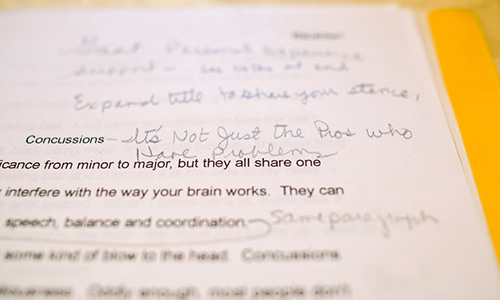 Great Personal Experience
support – see notes at end
Expand title to share your stance,
Concussions – It's Not Just the Pros who
Have Problems
icance from minor to major, but they all share one
interfere with the way your brain works. They can
speech, balance and coordination Same paragraph
some kind of blow to the head. Concussions
Oddly enough, most people don't